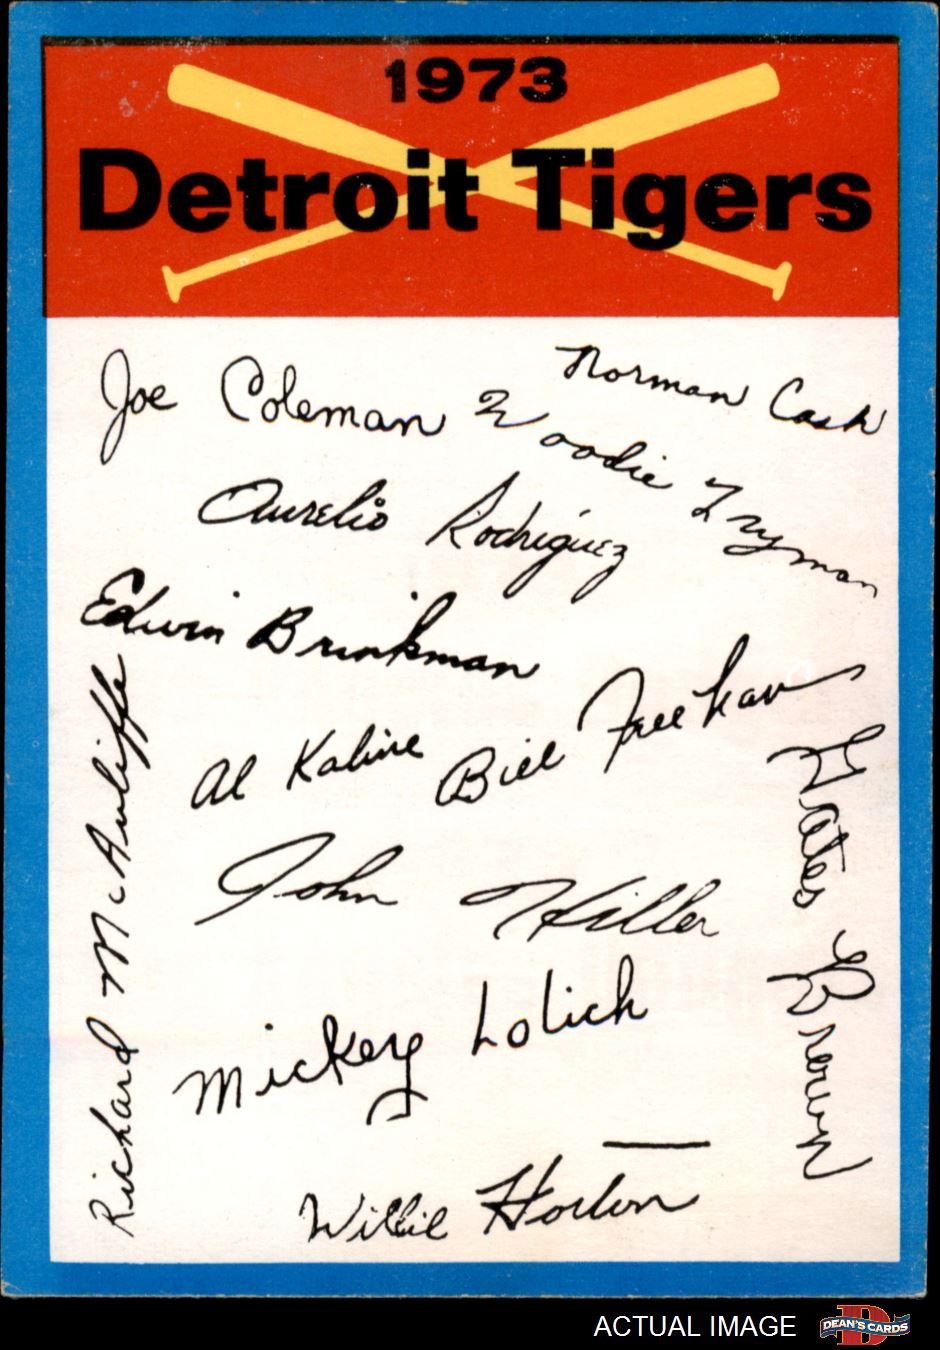 1973
Detroit Tigers
Joe Coleman
Norman Cash
Woodie Fryman
Aurelio Rodriguez
Edwin Brinkman
Bill Freehan
Al Kaline
Richard McAuliffe
Gates Brown
John Hiller
Mickey Lolich
Willie Horton
ACTUAL IMAGE
DEAN'S CARDS